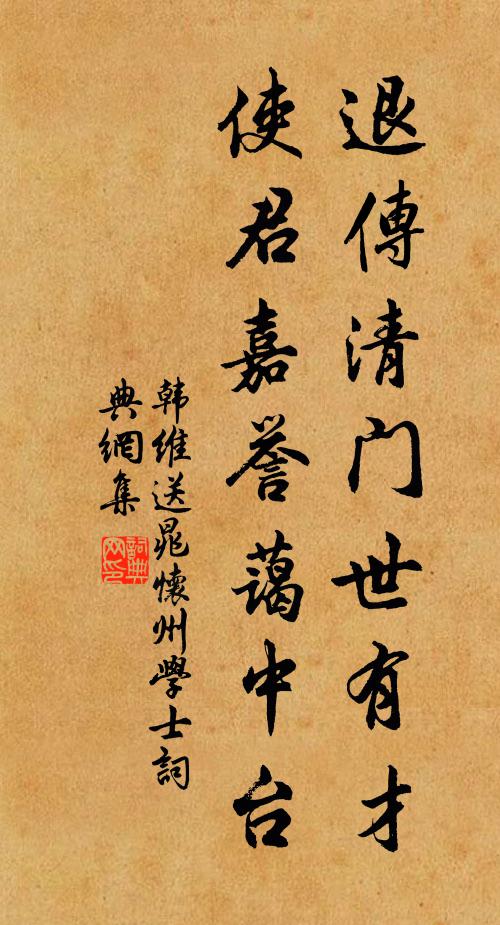 退傳清門世有才
使君嘉誉藹中台
韩维送晁懷州學士詞
典網集
詞典網印